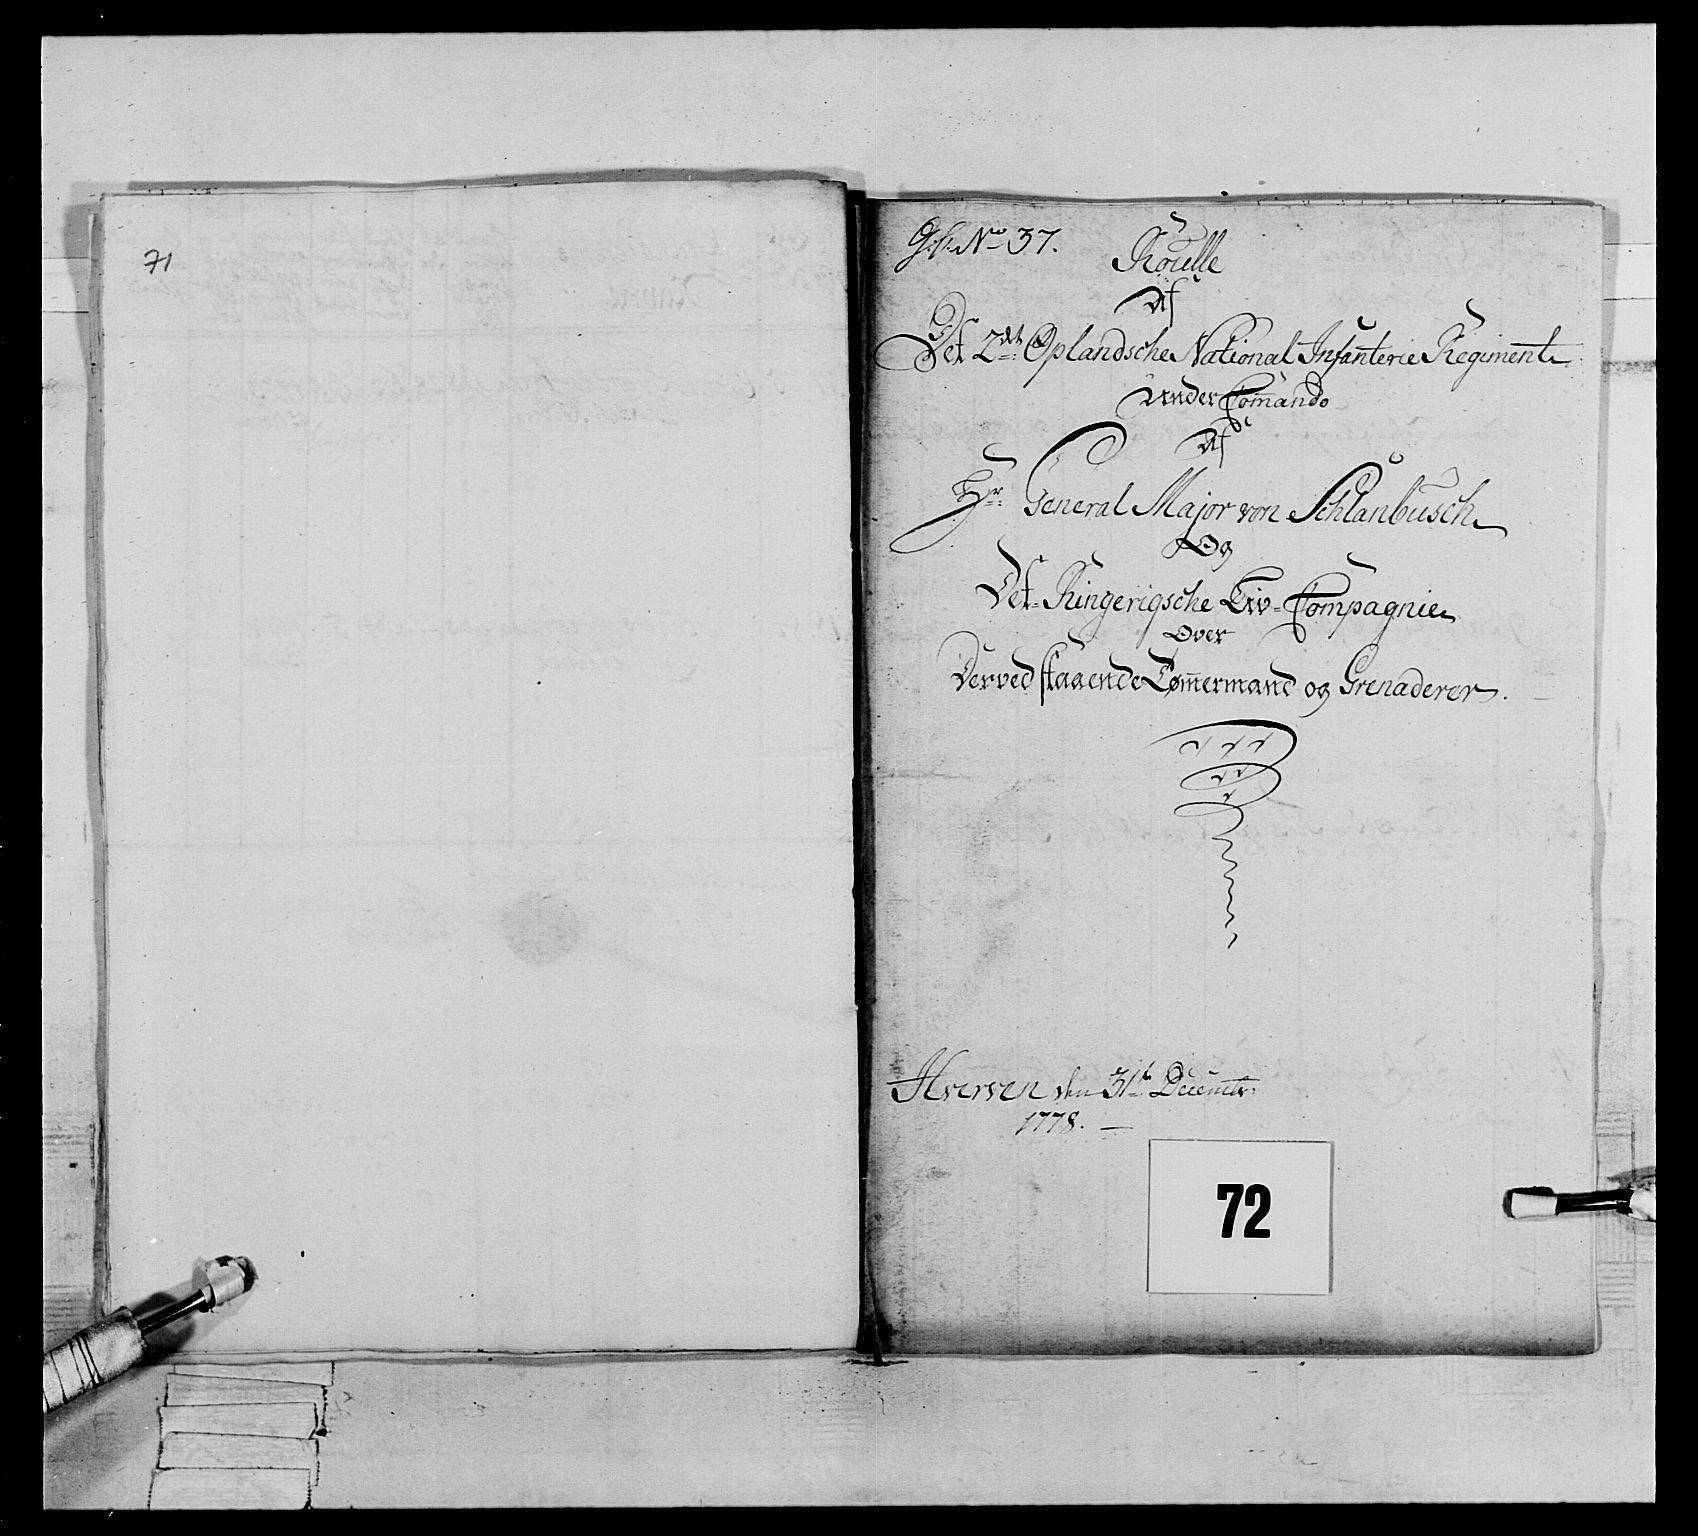 71
No 37.
Roulle
Af
Det 2det Oplandsche National Infanterie Regiment
Under Commando
Af
Hr: General Major von Schlanbusch
Og
Det Ringerigsche Liv-Compagnie
Over
Derved staaende Tømmermand og Grenaderer.
Hverven den 31te Decembr:
1778.
72